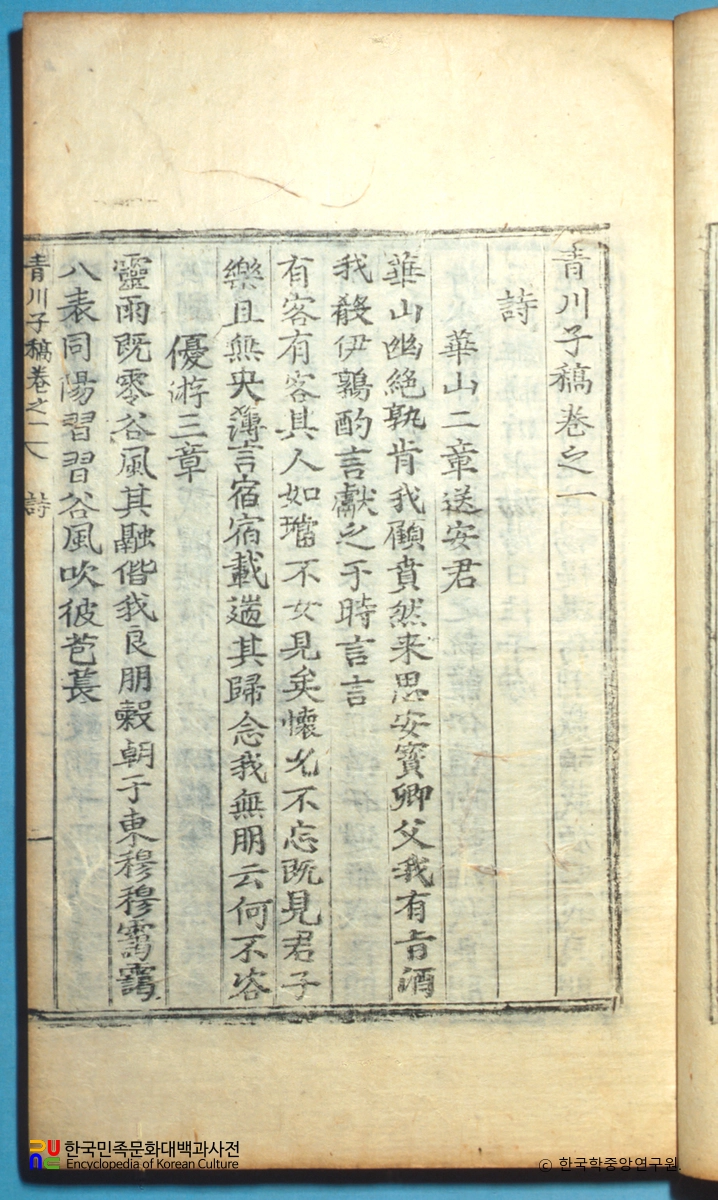 青川子稿卷之一
詩
華山二章送安君
華山幽絶孰肯我顧賁然来思安實卿父我有旨酒
我殽伊鶉酌言獻之于時言言
有客有客其人如璫不女見矣懷允不忘旣見君子
樂且無央薄言宿宿載遄其歸念我無朋云何不咨
優游三章
靈雨旣零谷風其融偕我良朋穀朝于東穆穆靄靄
八表同陽習習谷風吹彼苞萇
青川子稿卷之一 詩 一
한국민족문화대백과사전
Encyclopedia of Korean Culture
© 한국학중앙연구원